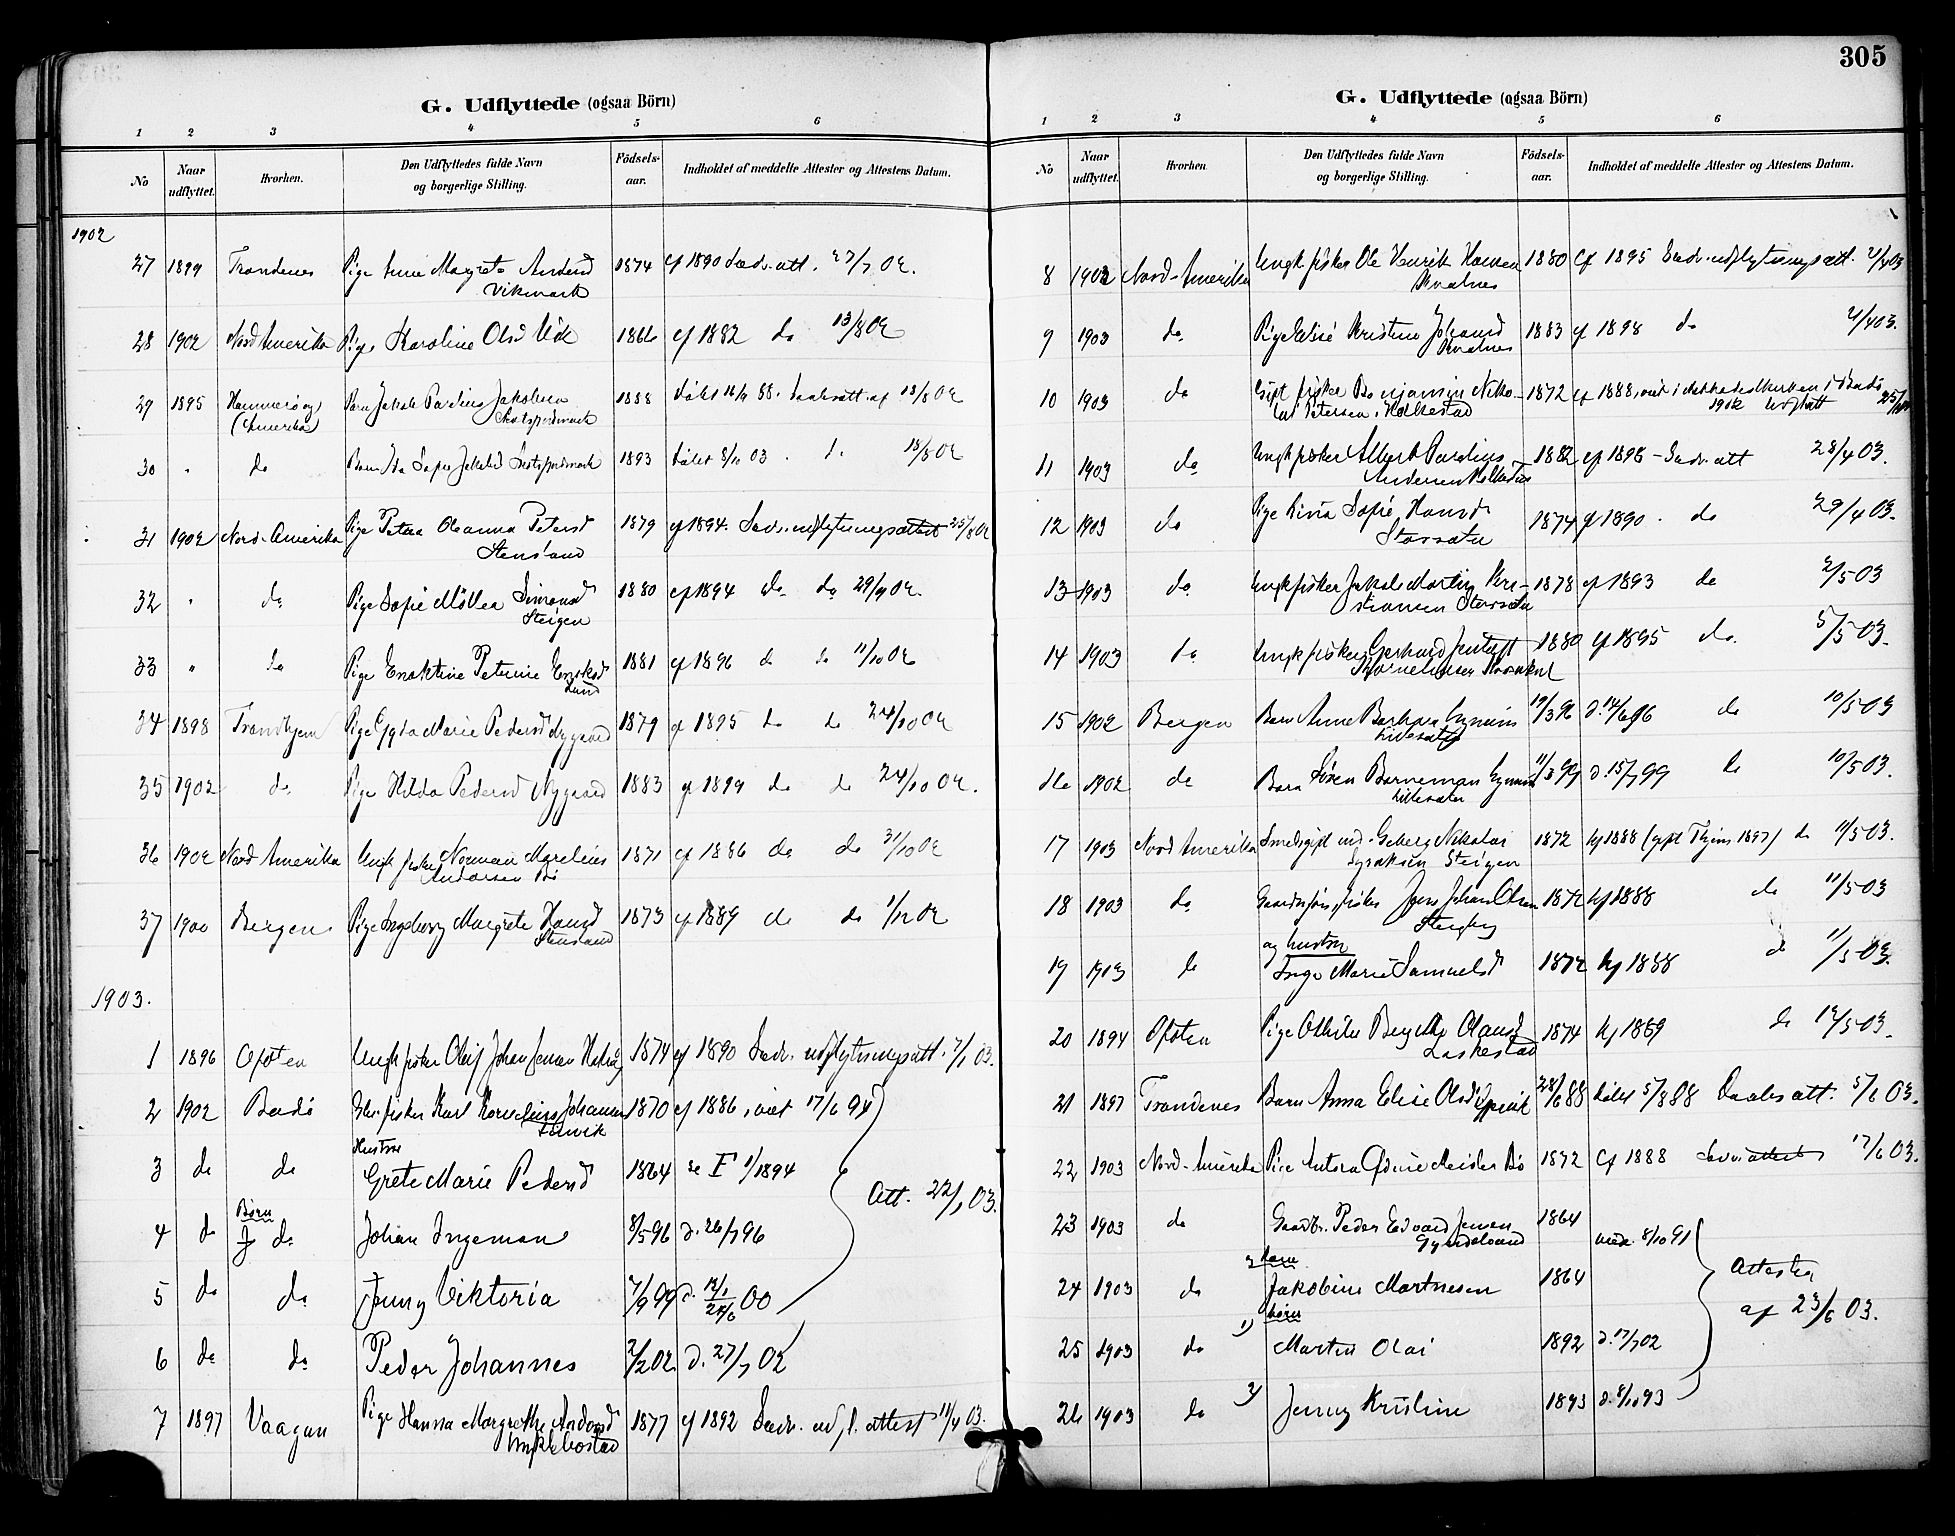 305
G. Udflyttede (ogsaa Börn)
1 2 3 4 5 6
No Naar udflyttet. Hvorhen. Den Udflyttedes fulde Navn og borgerlige Stilling. Födsels-aar. Indholdet af meddelte Attester og Attestens Datum.
1902
27 1899 Trondenes Pige Anne Margrete Andersd 1874 cf 1890 Sædv. att. 27/7 02.
Vikmark
28 1902 Nord Amerika Pige Karoline Olsd 1866 cf 1882 do 13/8 02
29 1895 Hammerø og Barn Jakob Paulius Jakobsen 1888 13/8 02
(Amerika)
30 " do Barn Ida Sofie Jakobsd 1893 döbt 8/10 03 . do 13/8 02
31 1902 Nord-Amerika Pige Petra Oleanna Petersd 1879 cf 1894. Sædv. udflytningsattest 25/8 02
Stensland
32 " do Pige Sofie Simonsd 1880 cf 1894 do do 29/9 02.
Steigen
33 " do Pige Petrine 1881 cf 1896 do do 11/10 02
Lund
34 1898 Trondhjem Pige Marie Pedersd Nygaard 1879 cf 1895 do do 24/10 02
35 1902 do Pige Hilda Pedersd Nygaard 1883 cf 1899 do do 24/10 02.
36 1902 Nord Amerika Ungk fisker Norman Marelius 1871 cf 1886 do do 31/10 02
Andersen Bö
37 1900 Bergen Pige Ingeborg Margrete Hansd 1873 cf 1889 do do 1/12 02
Stensland
1903.
1 1896 Ofoten Ungk fisker Olaf Johan Jensen 1874 cf 1890 Sædv. udflytningsatt. 7/1 03.
2 1902 Bodö fisker Karl Kornelius Johansen 1870 cf 1886, viet 17/6 94
Hustru
3 do do Grete Marie Pedersd 1864 se F 1/1894
Att. 22/1 03.
Børn
4 do do Johan Ingeman 8/5 96 d. 26/7 96
5 do do Jenny Viktoria 7/9 99 d. 00
6 do do Peder Johannes 2/2 02 d. 27/7 02
7 1897 Vaagan Pige Hanna Margrethe Andersd 1877 cf 1892 Sædv. udfl. attest 11/4 03.
Myklebostad
G. Udflyttede (ogsaa Börn)
1 2 3 4 5 6
No Naar udflyttet. Hvorhen Den Udflyttedes fulde Navn og borgerlige Stilling. Födsels-aar. Indholdet af meddelte Attester og Attestens Datum.
8 1902 Nord-Amerika Ungk fisker Ole Henrik Hansen 1880 cf 1895 Sædv. udflytningsatt. 2/4 03
9 1903 do Pige Kristine Johansd 1883 cf 1898 do 2/4 03.
10 1903 do Gift fisker Benjamin Niko- 1872 cf 1888, Bodö
Petersen, Holkestad 1902 25/4 03
11 1903 do Ungk fisker Albert Paulius 1882 cf 1898 - Sædv. att 28/4 03.
Andersen Holkestad
12 1903 do Pige Rina Sofie Hansd 1874 cf 1890 . do 29/4 03.
Storsæter
13 1903 do Ungk fisker Jakob Martin Kri- 1878 cf 1893 do 2/5 03
stiansen Storsæter
14 1903 do Ungk fisker Gerhard Jentoft 1880 cf 1895 do. 5/5 03.
Kornelinsen
15 1902 Bergen Barn Anne Barbara 19/3 96 d. 14/6 96 do 10/5 03
Lillesæter
16 1902 do Barn Sören Borneman 11/3 99 d. 15/7 99 do 10/5 03.
Lillesæter
17 1903 Nord Amerika Smedsgift Nikolai 1872 kf 1888 (gift Thjem 1897) do 11/5 03.
Steigen
18 1903 do fisker Jens Johan Olsen 1872 kf 1888 do 11/5 03
Steigen
og hustru
19 1903 do Inge Marie Samuelsd 1872 kf 1888 do 11/5 03.
20 1894 Ofoten Pige Othilie Bergithe Olausd 1874 kf 1889 do 12/5 03.
Laskestad
21 1897 Trondenes Barn Anna Elise Olsd 28/6 88 döbt 5/8 88 Daabsatt. 5/6 03.
22 1903 Nord-Amerika Pige Antora Meisler Bö 1872 cf 1888 17/6 03.
23 1903 do Gaardbr. Peder Edvard Jensen 1864 8/10 91
24 1903 do Jakobine Martinesen 1864
Attester
af 23/6 03.
börn
25 1903 do 1) Martin Olai 1892 d. 17/7 02
26 1903 do 2) Jenny Kristine 1893 d. 8/10 93